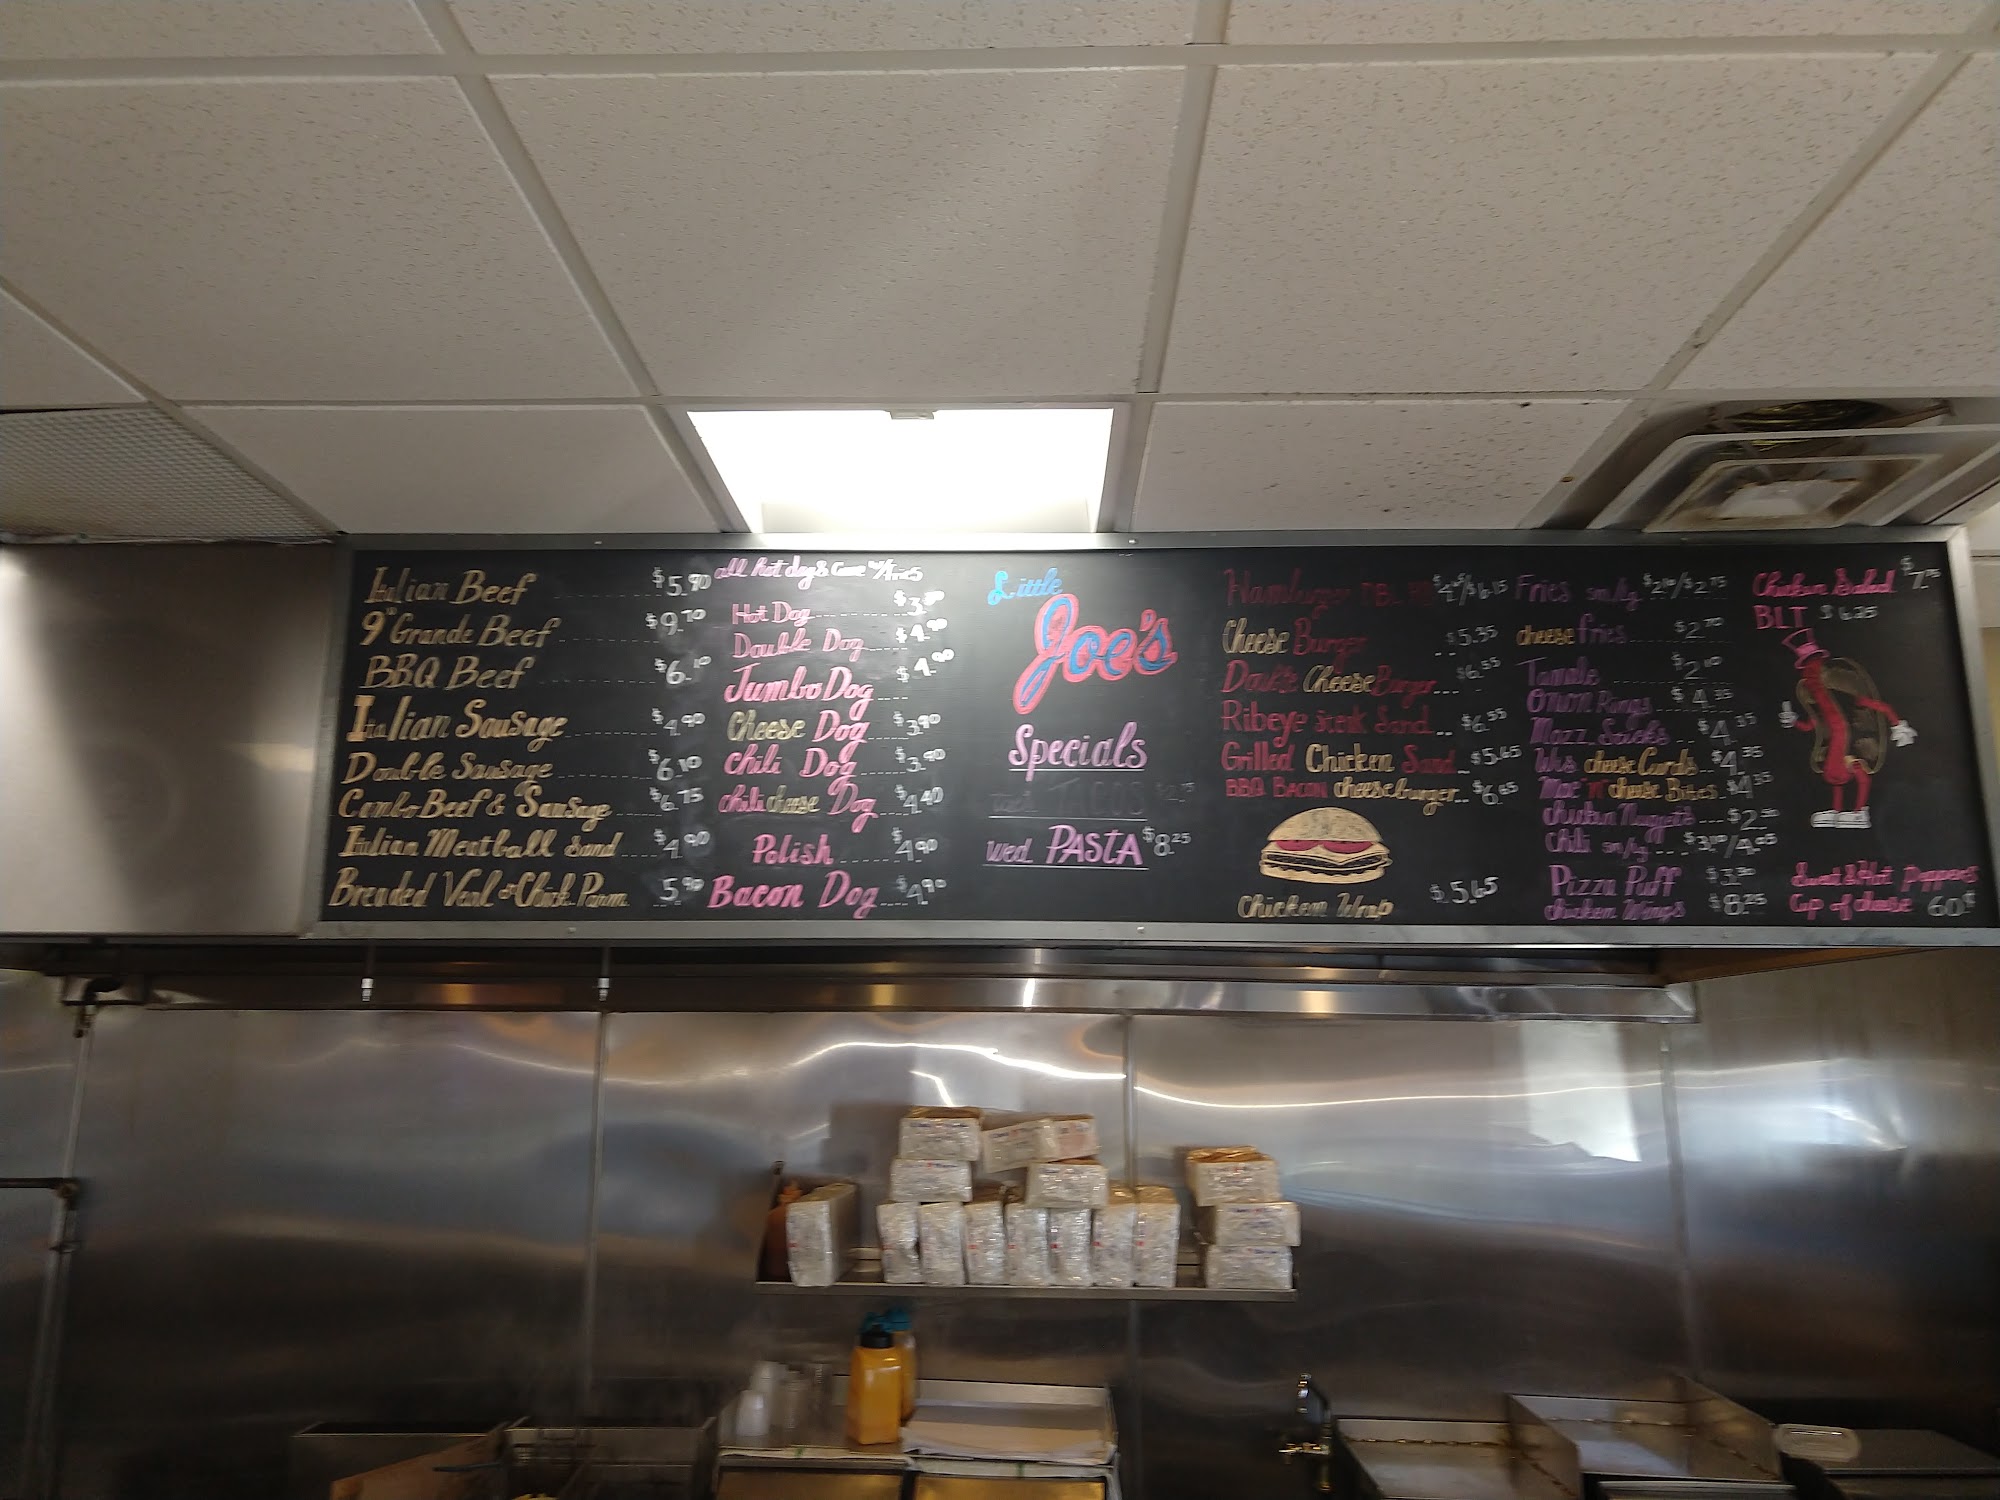 Italian Beef $5.90
9" Grande Beef $9.70
BBQ Beef $6.10
Italian Sausage $4.90
Double Sausage $6.10
Combo Beef & Sausage $6.75
Italian Meatball Sand $4.90
Breaded Veal or Chick. Parm 5.90
all hot dogs come w/fries
Hot Dog
Double Dog $4.90
Jumbo Dog $4.90
Cheese Dog $3.90
Chili Dog $3.90
chili cheese Dog $4.40
Polish $4.90
Bacon Dog $4.90
Little
Joe's
Specials
TACOS
wed. PASTA $8.25
Hamburger DBL
Cheese Burger $5.35
Cheese Burger $6.55
Ribeye Steak Sand $6.55
Grilled Chicken Sand $5.65
BBQ BACON cheeseburger $6.65
Chicken Wrap $5.65
Fries sm/lg
cheese fries $2.70
Tamale $2.10
Onion Rings $4.35
Mozz. Sticks $4.35
Wis cheese Curds $4.35
Mac "n" cheese Bites $4.35
chicken Nuggets
Chili sm/lg
Pizza Puff
chicken Wings $8.25
Chicken Salad
BLT $6.25
Sweet & Hot peppers
Cup of cheese 60¢